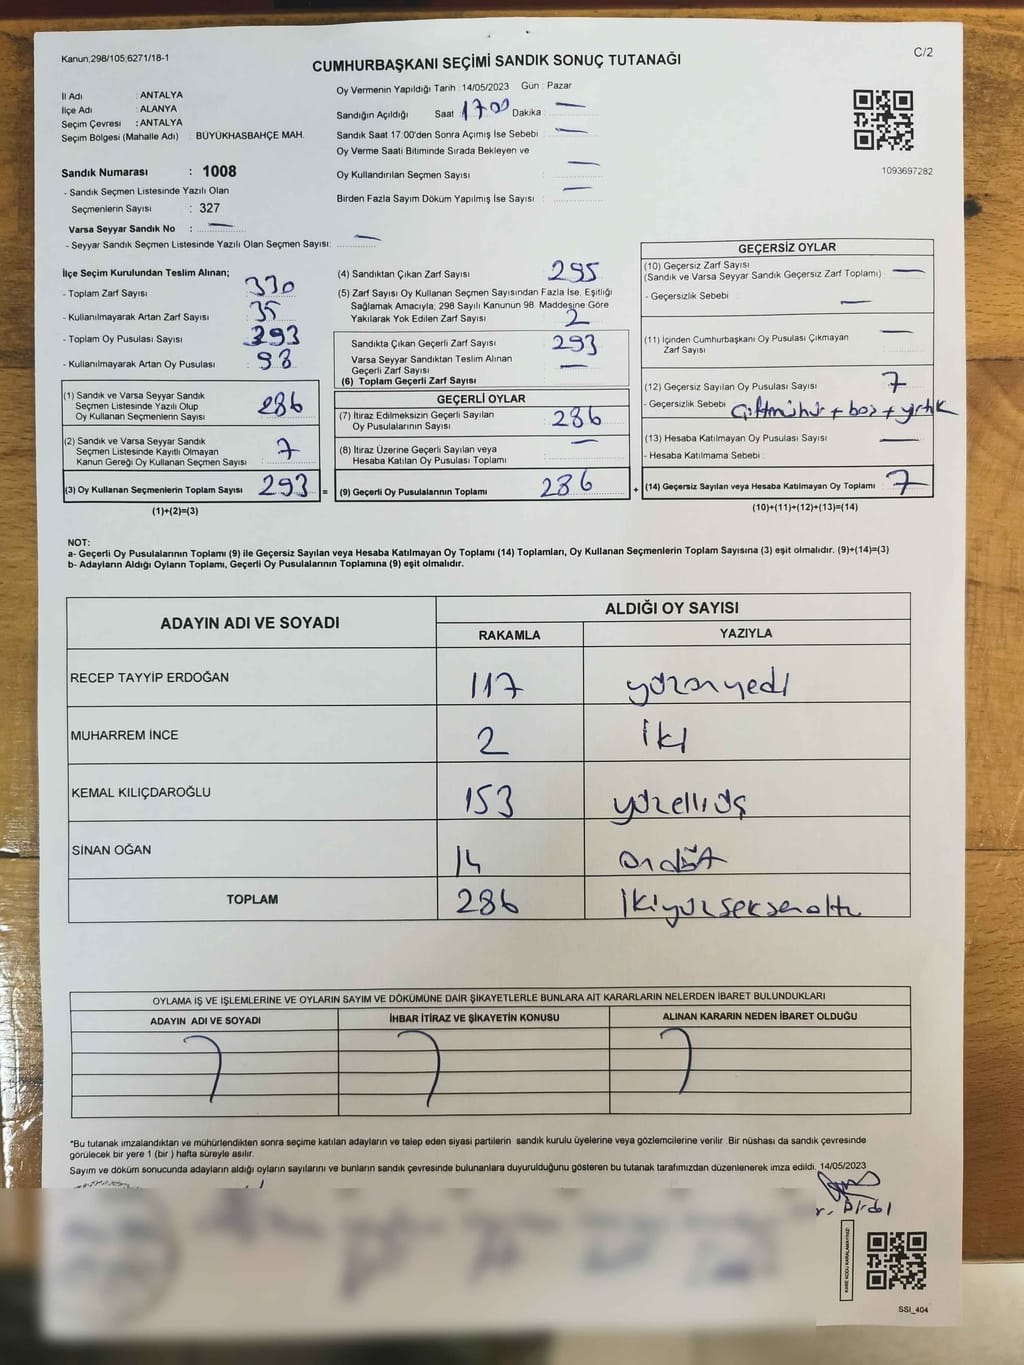 Kanun;298/105;6271/18-1
C/2
CUMHURBAŞKANI SEÇİMİ SANDIK SONUÇ TUTANAĞI
İl Adı : ANTALYA
İlçe Adı : ALANYA
Seçim Çevresi : ANTALYA
Seçim Bölgesi (Mahalle Adı) : BÜYÜKHASBAHÇE MAH.
Oy Vermenin Yapıldığı Tarih : 14/05/2023 Gün : Pazar
Sandığın Açıldığı Saat : 17 00 Dakika : —
Sandık Saat 17:00'den Sonra Açımış İse Sebebi : —
Oy Verme Saati Bitiminde Sırada Bekleyen ve
Oy Kullandırılan Seçmen Sayısı : —
Birden Fazla Sayım Döküm Yapılmış İse Sayısı : —
1093697282
Sandık Numarası : 1008
- Sandık Seçmen Listesinde Yazılı Olan
Seçmenlerin Sayısı : 327
Varsa Seyyar Sandık No : —
- Seyyar Sandık Seçmen Listesinde Yazılı Olan Seçmen Sayısı: —
İlçe Seçim Kurulundan Teslim Alınan;
- Toplam Zarf Sayısı : 330
- Kullanılmayarak Artan Zarf Sayısı : 35
- Toplam Oy Pusulası Sayısı : 393
- Kullanılmayarak Artan Oy Pusulası : 98
(1) Sandık ve Varsa Seyyar Sandık
Seçmen Listesinde Yazılı Olup
Oy Kullanan Seçmenlerin Sayısı : 286
(2) Sandık ve Varsa Seyyar Sandık
Seçmen Listesinde Kayıtlı Olmayan
Kanun Gereği Oy Kullanan Seçmen Sayısı : 7
(3) Oy Kullanan Seçmenlerin Toplam Sayısı : 293 =
(1)+(2)=(3)
(4) Sandıktan Çıkan Zarf Sayısı : 295
(5) Zarf Sayısı Oy Kullanan Seçmen Sayısından Fazla İse, Eşitliği
Sağlamak Amacıyla; 298 Sayılı Kanunun 98. Maddesine Göre
Yakılarak Yok Edilen Zarf Sayısı : 2
Sandıkta Çıkan Geçerli Zarf Sayısı : 293
Varsa Seyyar Sandıktan Teslim Alınan
Geçerli Zarf Sayısı : —
(6) Toplam Geçerli Zarf Sayısı :
GEÇERLİ OYLAR
(7) İtiraz Edilmeksizin Geçerli Sayılan
Oy Pusulalarının Sayısı : 286
(8) İtiraz Üzerine Geçerli Sayılan veya
Hesaba Katılan Oy Pusulası Toplamı : —
(9) Geçerli Oy Pusulalarının Toplamı : 286 +
GEÇERSİZ OYLAR
(10) Geçersiz Zarf Sayısı
(Sandık ve Varsa Seyyar Sandık Geçersiz Zarf Toplamı) : —
- Geçersizlik Sebebi : —
(11) İçinden Cumhurbaşkanı Oy Pusulası Çıkmayan
Zarf Sayısı : —
(12) Geçersiz Sayılan Oy Pusulası Sayısı : 7
- Geçersizlik Sebebi : Çiftmühür + boş + yırtık
(13) Hesaba Katılmayan Oy Pusulası Sayısı : —
- Hesaba Katılmama Sebebi :
(14) Geçersiz Sayılan veya Hesaba Katılmayan Oy Toplamı : 7
(10)+(11)+(12)+(13)=(14)
NOT:
a- Geçerli Oy Pusulalarının Toplamı (9) ile Geçersiz Sayılan veya Hesaba Katılmayan Oy Toplamı (14) Toplamları, Oy Kullanan Seçmenlerin Toplam Sayısına (3) eşit olmalıdır. (9)+(14)=(3)
b- Adayların Aldığı Oyların Toplamı, Geçerli Oy Pusulalarının Toplamına (9) eşit olmalıdır.
ADAYIN ADI VE SOYADI ALDIĞI OY SAYISI
RAKAMLA YAZIYLA
RECEP TAYYİP ERDOĞAN 117 yüzonyedi
MUHARREM İNCE 2 iki
KEMAL KILIÇDAROĞLU 153 yüzelliüç
SİNAN OĞAN 14 ondört
TOPLAM 286 ikiyüzseksenaltı
OYLAMA İŞ VE İŞLEMLERİNE VE OYLARIN SAYIM VE DÖKÜMÜNE DAİR ŞİKAYETLERLE BUNLARA AİT KARARLARIN NELERDEN İBARET BULUNDUKLARI
ADAYIN ADI VE SOYADI İHBAR İTİRAZ VE ŞİKAYETİN KONUSU ALINAN KARARIN NEDEN İBARET OLDUĞU
*Bu tutanak imzalandıktan ve mühürlendikten sonra seçime katılan adayların ve talep eden siyasi partilerin sandık kurulu üyelerine veya gözlemcilerine verilir .Bir nüshası da sandık çevresinde
görülecek bir yere 1 (bir ) hafta süreyle asılır.
Sayım ve döküm sonucunda adayların aldığı oyların sayılarını ve bunların sandık çevresinde bulunanlara duyurulduğunu gösteren bu tutanak tarafımızdan düzenlenerek imza edildi. 14/05/2023
KARE KODU KARALAMAYINIZ!
SSI_404